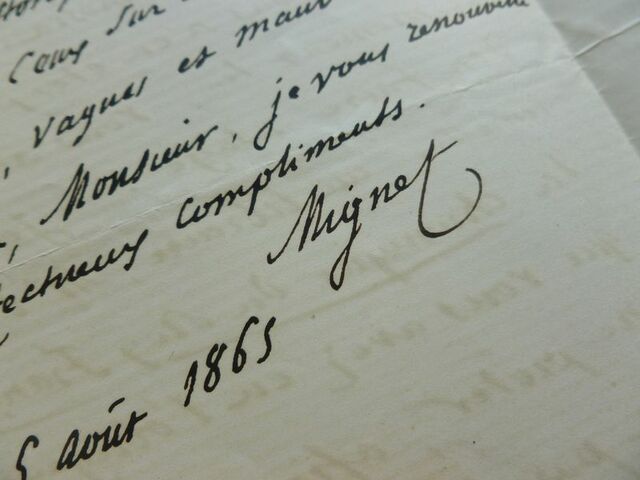 sur
, vagues et
, Monsieur, je vous renouvelle
ectueux compliments.
Mignet
5 août 1865